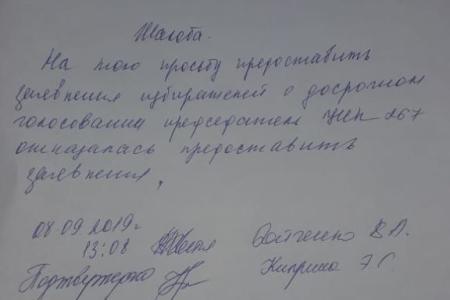 Жалоба.
На мою просьбу предоставить
заявления избирателей о досрочном
голосовании председатель УИК 267
отказалась предоставить
заявления,
08.09.2019г
13:08 В.Л.
Подтверждаю Киприна